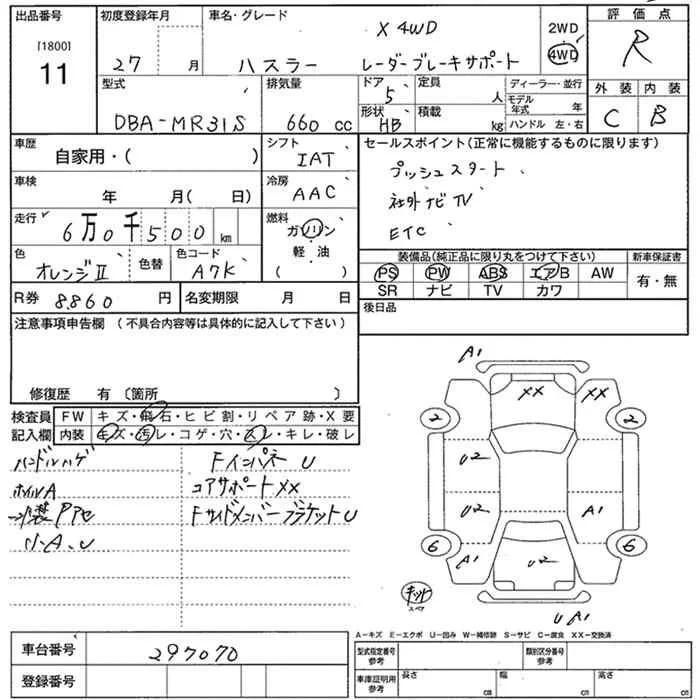 出品番号 初度登録年月 車名・グレード 評価点
[1800] 11
27 月
X 4WD
ハスラー レーダーブレーキサポート
2WD
4WD
R
型式 排気量 ドア 定員 ディーラー・並行 外装 内装
DBA-MR31S 660 cc 5 人 モデル年式 年 C B
形状 HB 積載 kg ハンドル 左・右
車歴 自家用・( )
シフト IAT
セールスポイント(正常に機能するものに限ります)
プッシュスタート
社外ナビTV
ETC
車検 年 月( 日)
冷房 AAC
走行 6万0千500 km
燃料 ガソリン 軽油 ( )
色 オレンジII 色替 色コード A7K
装備品(純正品に限り丸をつけて下さい) 新車保証書
PS PW ABS エアB AW 有・無
SR ナビ TV カワ
R券 8860 円 名変期限 月 日
後日品
注意事項申告欄 (不具合内容等は具体的に記入して下さい)
修復歴 有 〔箇所 〕
検査員 FW キズ・飛石・ヒビ割・リペア跡・X要
記入欄 内装 キズ・汚レ・コゲ・穴・スレ・キレ・破レ
ハンドルハゲ FインパネU
ホイルA コアサポートXX
FサイドメンバーブラケットU
小A、U
A1
XX XX
2 2
U2
U2 A1
6 6
A1 U2
キット
スペア
U A1
A-キズ E-エクボ U-凹み W-補修跡 S-サビ C-腐食 XX-交換済
車台番号 297070
型式指定番号 参考 類別区分番号 参考
登録番号
車庫証明用 参考 長さ cm 幅 cm 高さ cm